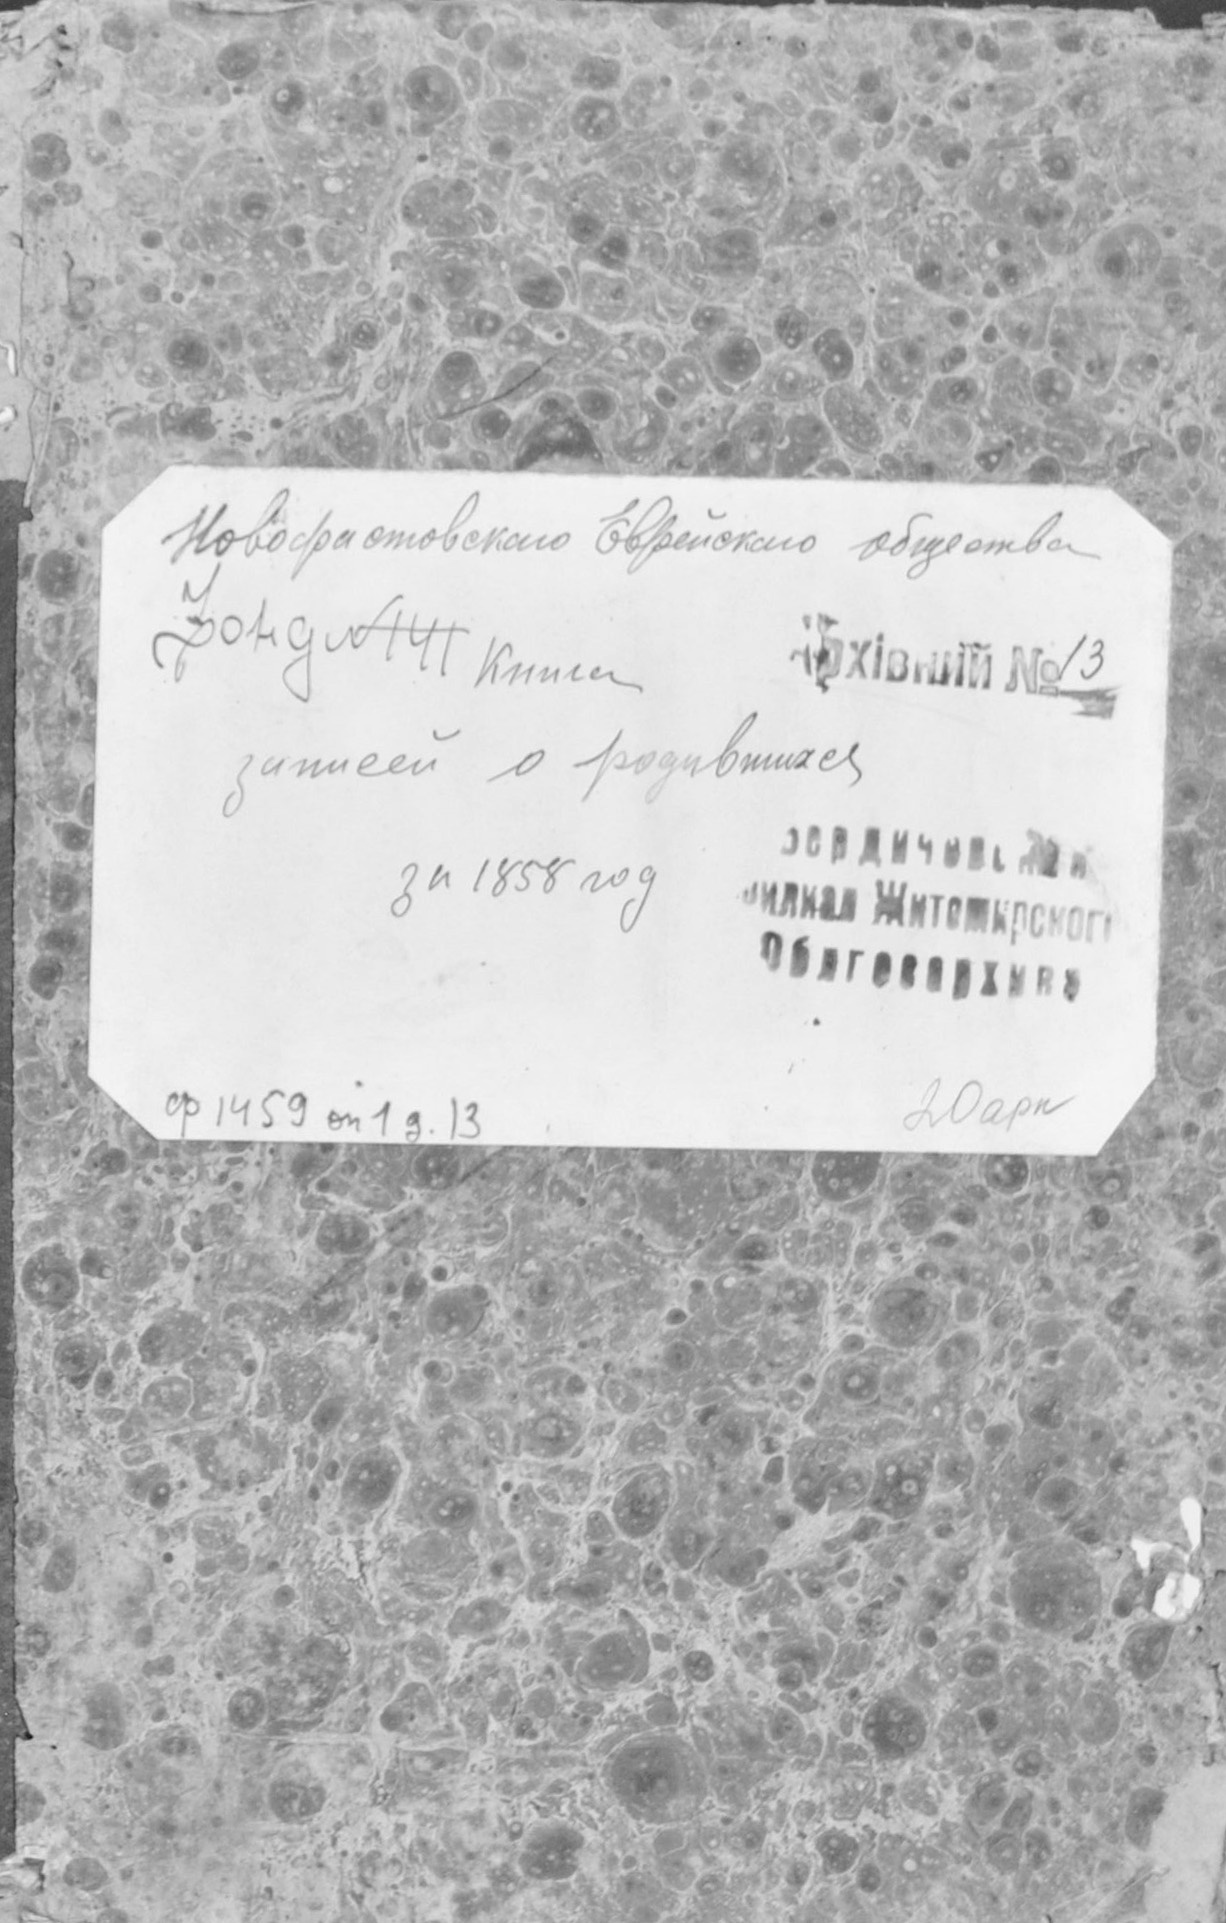 Новофастовскаго Еврейскаго общества
Фонд № Книга
Архівний № 13
записей о родившихся
за 1858 год
Бердичевский
филиал Житомирского
Облгосархива
ф 1459 оп 1 д. 13
20 арк